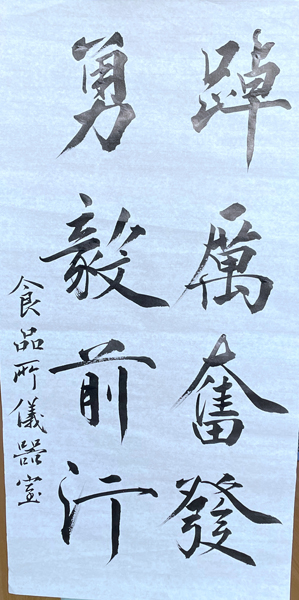 踔厲奮發
勇毅前行
食品所儀器室